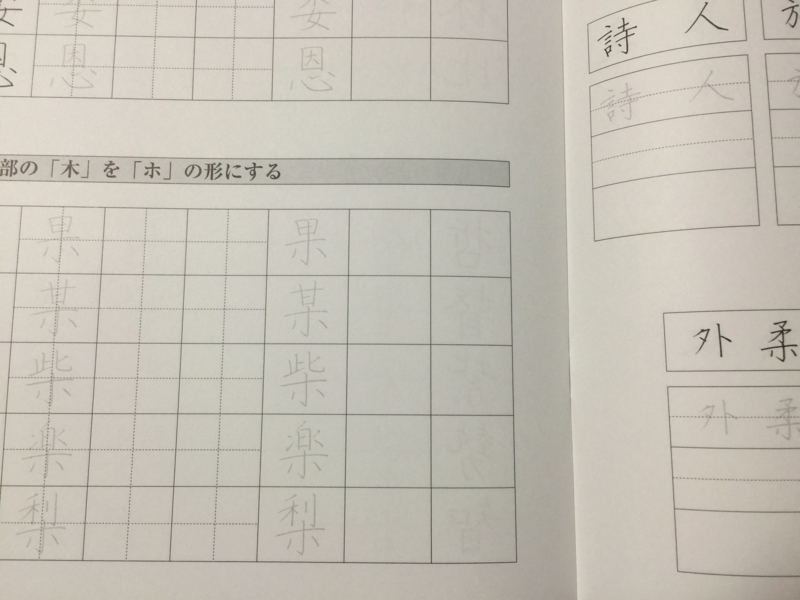 姿 姿
恩 恩 恩
部の「木」を「ホ」の形にする
果 果
某 某
柴 柴
楽 楽
梨 梨
詩 人
詩 人
外 柔
外 柔